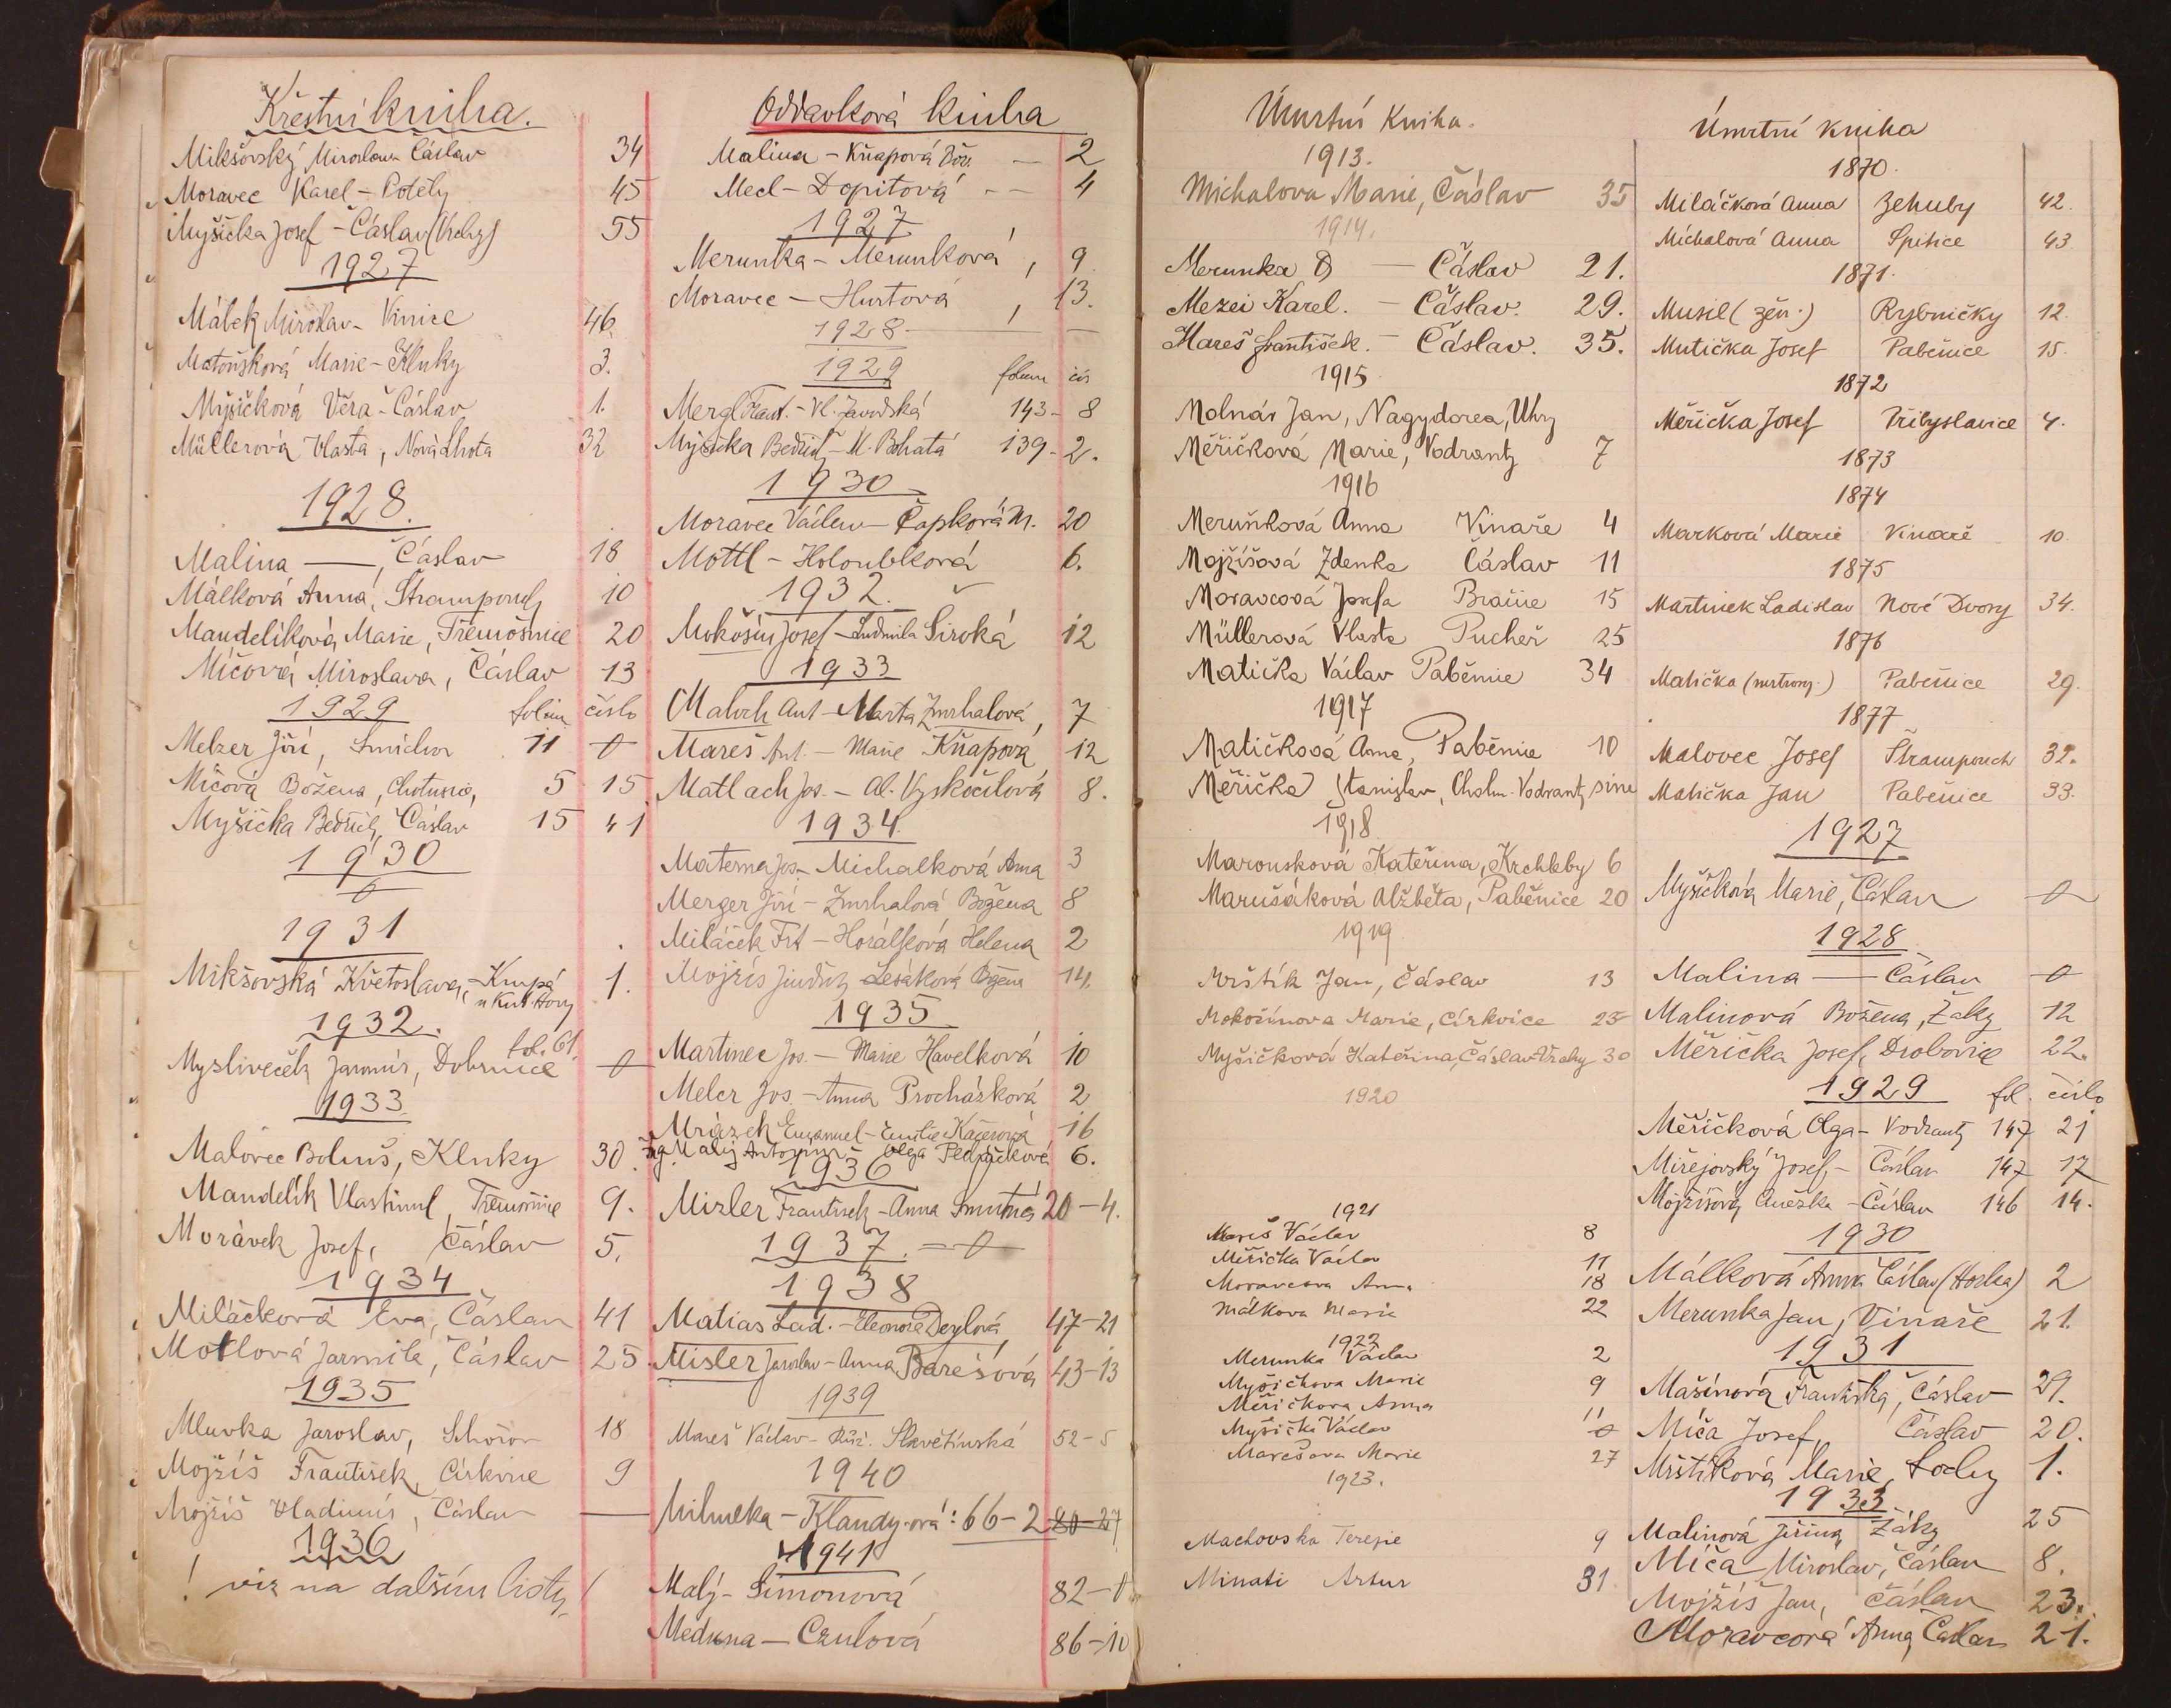 Křestní kniha.
Mikšovský Miroslav Čáslav 34
Moravec Karel - Potěhy 45
Myšička Josef - Čáslav (Vrchy) 55
1927
Málek Miroslav - Vinice 46.
Matoušková Marie - Kluky 3.
Myšičková Věra - Čáslav 1.
Müllerová Vlasta, Nová Lhota 32
1928.
Malina — , Čáslav 18
Málková Anna, Štrampouch 10
Mandelíková Marie, Třemošnice 20
Míčová Miroslava, Čáslav 13
1929 folium číslo
Melzer Jiří, Smíchov 11 0
Míčová Božena, Chotusice, 5 15
Myšička Bedřich, Čáslav 15 41
1930
0
1931
Mikšovská Květoslava, - Krupá 1.
u Kut. Hory
1932.
fol. 61.
Mysliveček Jaromír, Dobrnice 0
1933
Malovec Bohuš, Kluky 30.
Mandelík Vlastimil, Třemošnice 9.
Morávek Josef, Čáslav 5.
1934
Miláčková Eva, Čáslav 41
Motlová Jarmila, Čáslav 25.
1935
Mluvka Jaroslav, 18
Mojžíš František, Církvice 9
Mojžíš Vladimír, Čáslav —
1936
! viz na dalším listy !
Oddavková kniha
Malina - Kňapová Bož. — 2
Mecl - Dopitová — 4
1927.
Merunka - Merunková , 9.
Moravec - Hurtová , 13.
1928 — —
1929 folium čís
Mergl Frant. - Vl. Zavodská 143 - 8
Myšička Bedřich - M. Bohatá 139 - 2.
1930
Moravec Václav - Čapková M. 20
Mottl - Holoubková 6.
1932.
Mokošín Josef - Ludmila Široká 12
1933
Maloch Ant - Marta Zmrhalová, 7
Mareš Ant. - Marie Kňapová 12
Matlach Jos. - Al. Vyskočilová 8.
1934.
Materna Jos. - Michalková Anna 3
Merger Jiří - Zmrhalová Božena 8
Miláček Frt - Horálková Helena 2
Mojžíš Jindřich - Lesáková Božena 14.
1935
Martinec Jos. - Marie Havelková 10
Melcr Jos. - Anna Procházková 2
Mrázek Emanuel - Emilie Kačerová 16
Malij Antonín - Olga 6.
1936
Mizler František - Anna Smutná 20 - 4.
1937. — 0
1938
Matias Lad. - Eleonora Deylová, 47 - 21
Misler Jaroslav - Anna Barešová 43 - 13
1939
Mareš Václav - Růž. Slavětínská 52 - 5
1940
Milnerka - Klandy-ová: 66 - 2 80 - 27
1941
Malý - Šimonová 82 - 0
Meduna - Czulová 86 - 10
Úmrtní Kniha.
1913.
Michalova Marie, Čáslav 35
1914.
Merunka — Čáslav 21.
Mezei Karel. - Čáslav. 29.
Mareš František. - Čáslav. 35.
1915
Molnár Jan, Nagydorea, Uhry
Měřičková Marie, Vodranty 7
1916
Meruňková Anna Vinaře 4
Mojžíšová Zdenka Čáslav 11
Moravcová Josefa 15
Müllerová Vlasta Pucheř 25
Matička Václav Paběnice 34
1917
Matičková Anna, Paběnice 10
Měřička Stanislav, Vodranty sine
1918
Marousková Kateřina, Krchleby 6
Marušáková Alžběta, Paběnice 20
1919
Mrštík Jan, Čáslav 13
Mokošínova Marie, Církvice 25
Myšičková Kateřina, Čáslav Vrchy 30
1920
1921
Mareš Václav 8
Měřička Václav 11
Moravcova Anna 18
Málkova Marie 22
1922
Merunka Václav 2
Myšičkova Marie 9
Měřičkova Anna 11
Myšička Václav 0
Marešova Marie 27
1923.
Machovska Terezie 9
Minati Artur 31
Úmrtní kniha
1870.
Miláčková Anna Žehuby 42.
Míchalová Anna Spitice 43
1871.
Musil (žen.) Rybničky 12.
Mutička Josef Paběnice 15.
1872
Měřička Josef Přibyslavice 4.
1873
1874
Marková Marie Vinaře 10.
1875
Martinek Ladislav Nové Dvory 34.
1876
Matička Paběnice 29.
1877
Malovec Josef Štrampouch 32.
Matička Jan Paběnice 33.
1927
Myšičková Marie, Čáslav 0
1928
Malina — Čáslav 0
Malinová Božena, Žaky 12
Měřička Josef, Drobovice 22.
1929 fol. číslo
Měřičková Olga - Vodranty 147 21
Miřejovský Josef - Čáslav 147 17
Mojžíšová Anežka - Čáslav 146 14.
1930
Málková Anna Čáslav (Horka) 2
Merunka Jan, Vinaře 21.
1931
Mašínová Františka, Čáslav 29.
Míča Josef, Čáslav 20.
Mrštíková Marie, Lochy 1.
1933
Malinová Jiřina, Žáky 25
Míča Miroslav, Čáslav 8.
Mojžíš Jan, Čáslav 23.
Moravcová Anna, Čáslav 21.